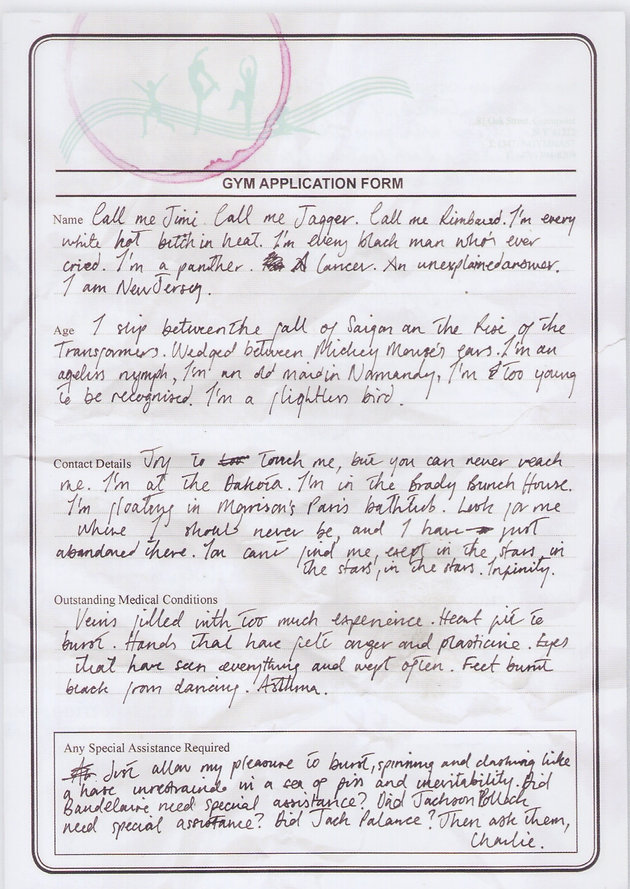 GYM APPLICATION FORM
Name Call me Jimi. Call me Jagger. Call me Rimbaud. I'm every
white hot bitch in heat. I'm every black man who's ever
cried. I'm a panther. A Cancer. An unexplained answer.
I am New Jersey.
Age I slip between the fall of Saigon an the Rise of the
Transformers. Wedged between Mickey Mouse's ears. I'm an
ageless nymph, I'm an old maid in Normandy, I'm too young
to be recognised. I'm a flightless bird.
Contact Details Try to touch me, but you can never reach
me. I'm at the Dakota. I'm in the Brady Bunch House.
I'm floating in Morrison's Paris bathtub. Look for me
where I should never be, and I have just
abandoned there. You can't find me, exept in the stars, in
the stars, in the stars. Infinity.
Outstanding Medical Conditions
Veins filled with too much experience. Heart fit to
burst. Hands that have felt anger and plasticine. Eyes
that have seen everything and wept often. Feet burnt
black from dancing. Asthma.
Any Special Assistance Required
Just allow my pleasure to burst, spinning and clashing like
a hare unrestrained in a sea of piss and inevitability. Did
Baudelaire need special assistance? Did Jackson Pollock
need special assistance? Did Jack Palance? Then ask them,
Charlie.